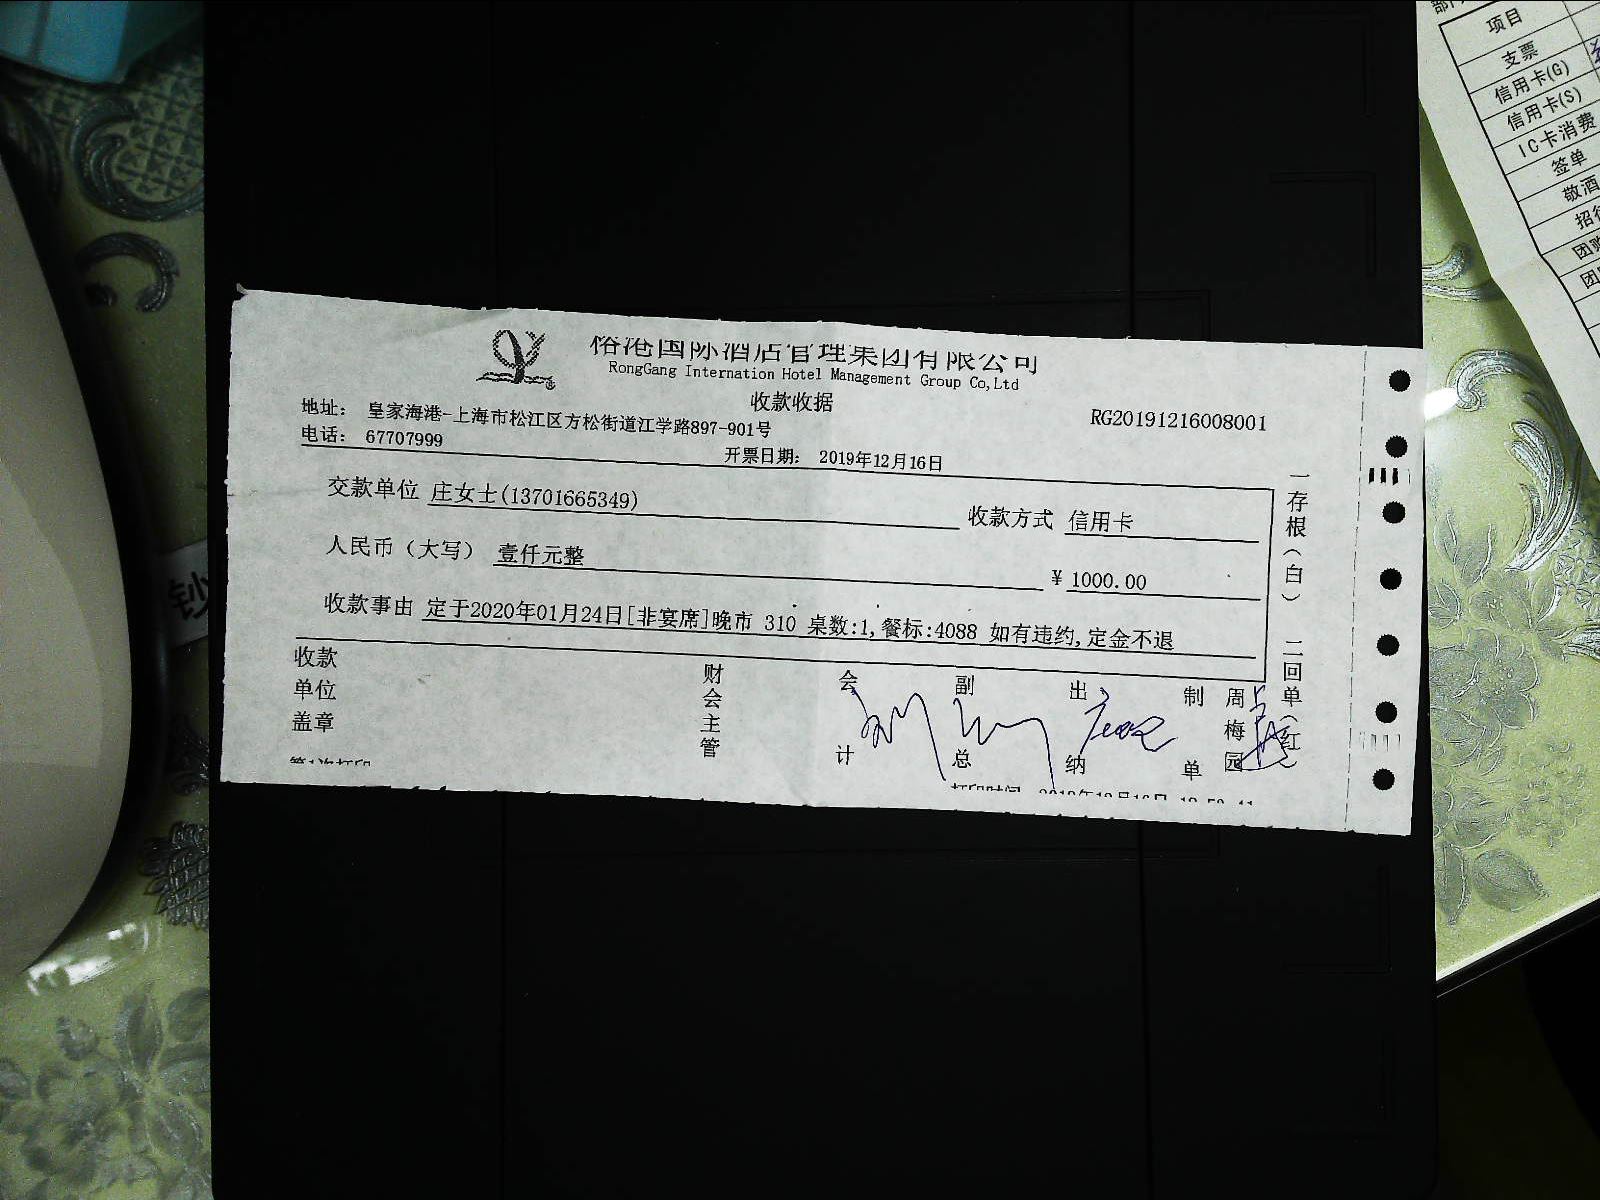 俗港国际酒店管理集团有限公司
RongGang Internation Hotel Management Group Co,Ltd
收款收据
地址： 皇家海港-上海市松江区方松街道江学路897-901号
RG20191216008001
电话： 67707999
开票日期： 2019年12月16日
交款单位 庄女士(13701665349)
收款方式 信用卡
人民币（大写） 壹仟元整
¥ 1000.00
收款事由 定于2020年01月24日[非宴席]晚市 310 桌数:1,餐标:4088 如有违约,定金不退
一存根（白） 二回单（红
收款单位盖章
财会主管
会计
副总
出纳
制单
周梅园
第1次打印
打印时间 2019年12月16日
钞
项目
支票
信用卡(G)
信用卡(S)
IC卡消费
签单
敬酒
团购
团